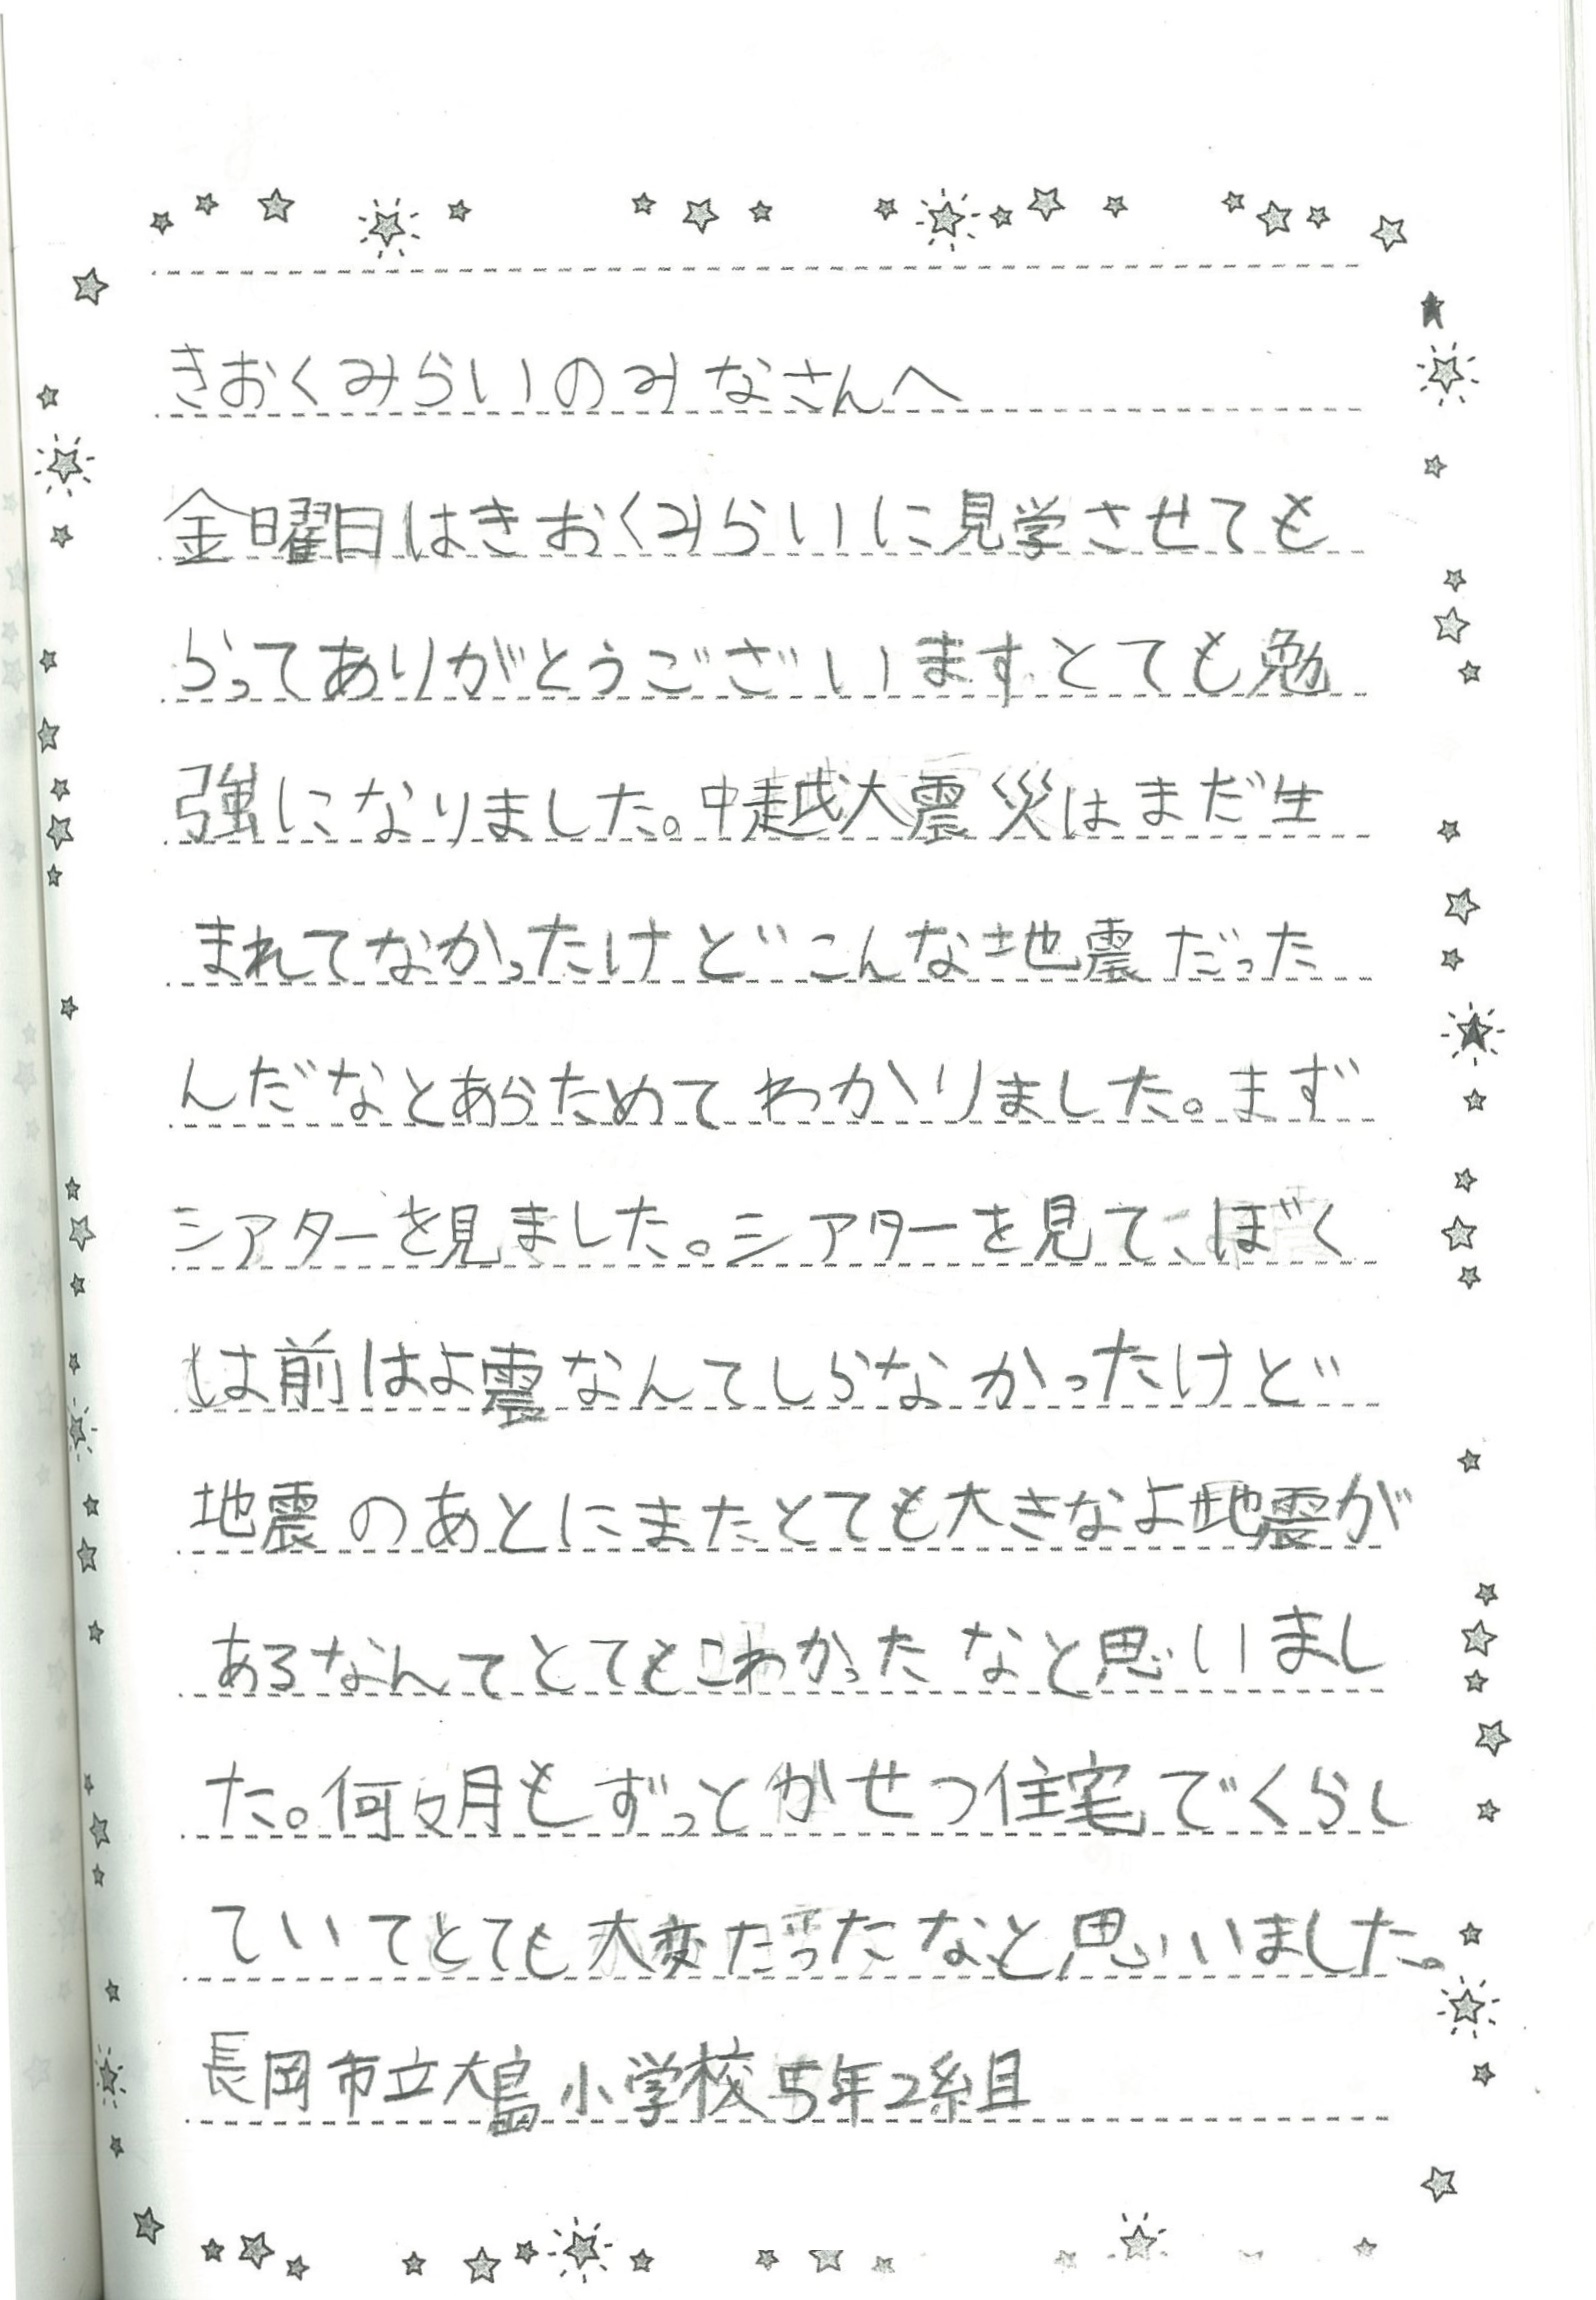 きおくみらいのみなさんへ
金曜日はきおくみらいに見学させても
らってありがとうございますとても勉
強になりました。中越大震災はまだ生
まれてなかったけどこんな地震だった
んだなとあらためてわかりました。まず
シアターを見ました。シアターを見て、ぼく
は前はよ震なんてしらなかったけど
地震のあとにまたとても大きなよ地震が
あるなんてとてもこわかったなと思いまし
た。何々月もずっとかせつ住宅でくらし
ていてとても大変だったなと思いいました。
長岡市立大島小学校5年2組